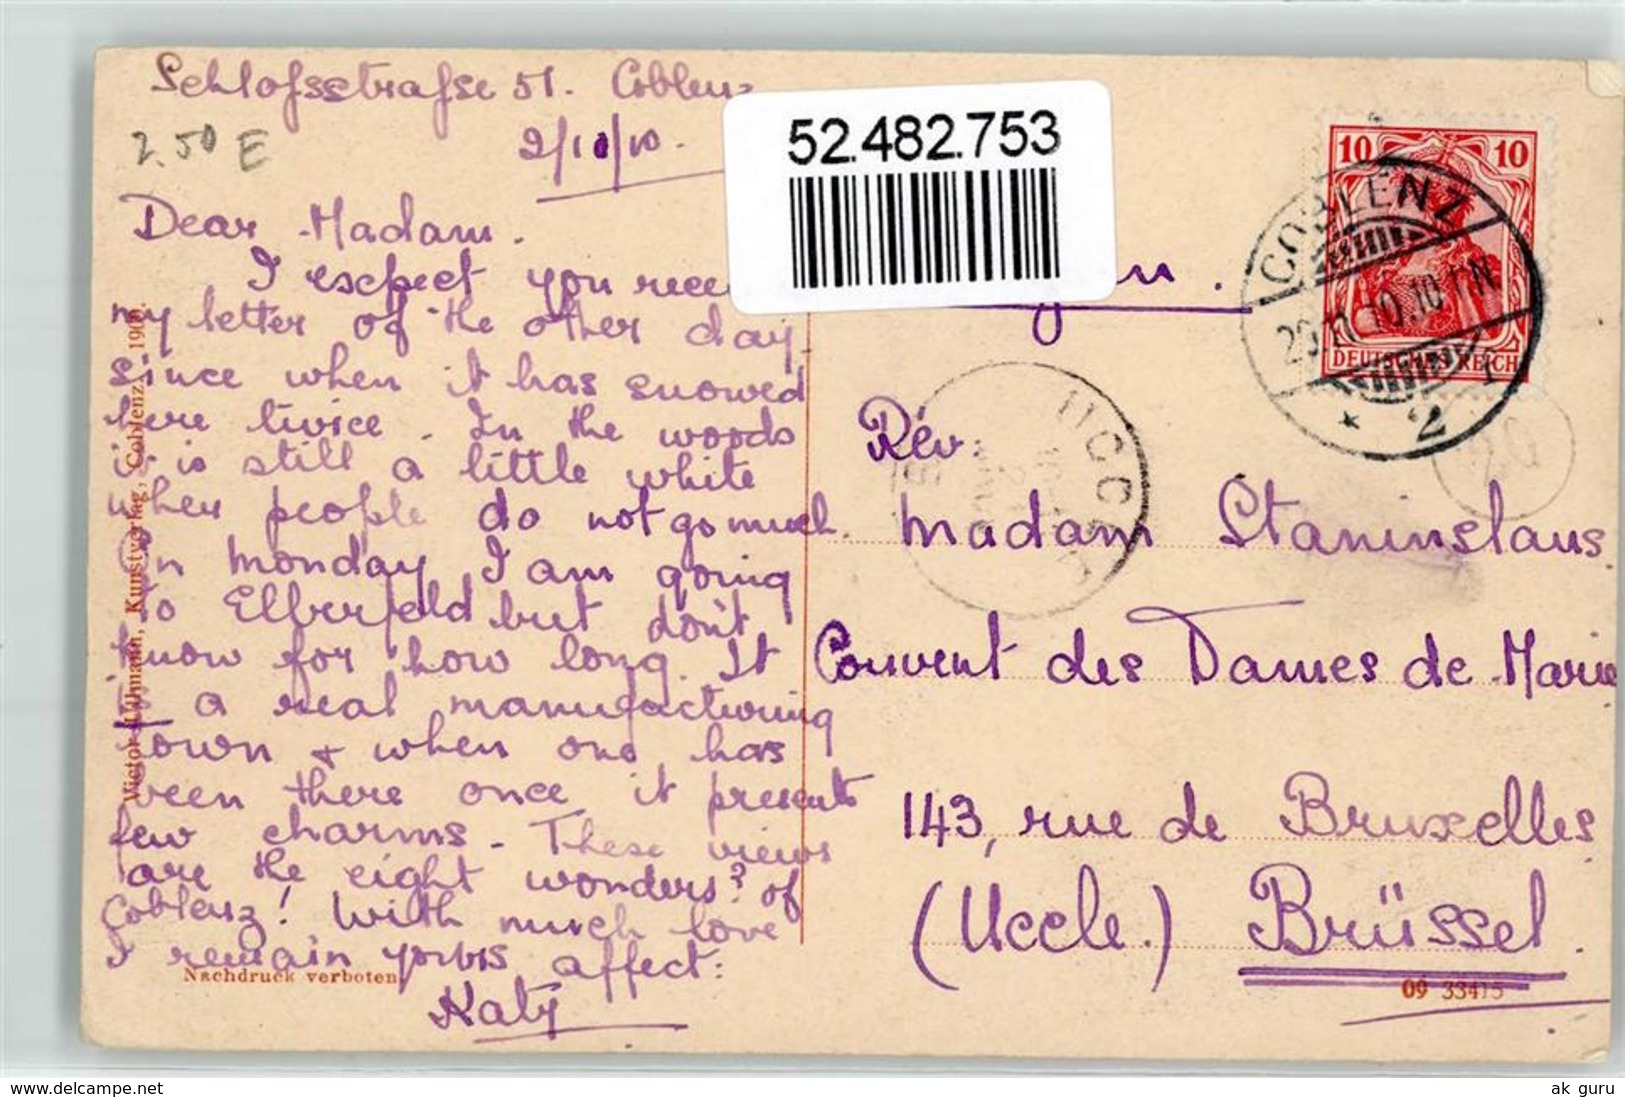 Schlofsstrafse 51. Coblenz
2.50 E
2/10/10.
52.482.753
Dear Madam.
I expect you
my letter of the other day.
since when it has snowed
here twice. In the woods
it is still a little white
when people do not go much.
On Monday I am going
to Elberfeld but don't
know for how long. It
a real manufacturing
town + when one has
been there once it presents
few charms. These views
are the eight wonders? of
Coblenz! With much love
I remain yours affect:
Katy
Nachdruck verboten
Kunstverlag, Coblenz. 1909.
10 10
DEUTSCHES REICH
COBLENZ
* 2
UCCLE
Rév:
Madam Staninslaus
Convent des Dames de Marie
143, rue de Bruxelles
(Uccle.) Brüssel.
09 33415
www.delcampe.net
ak_guru